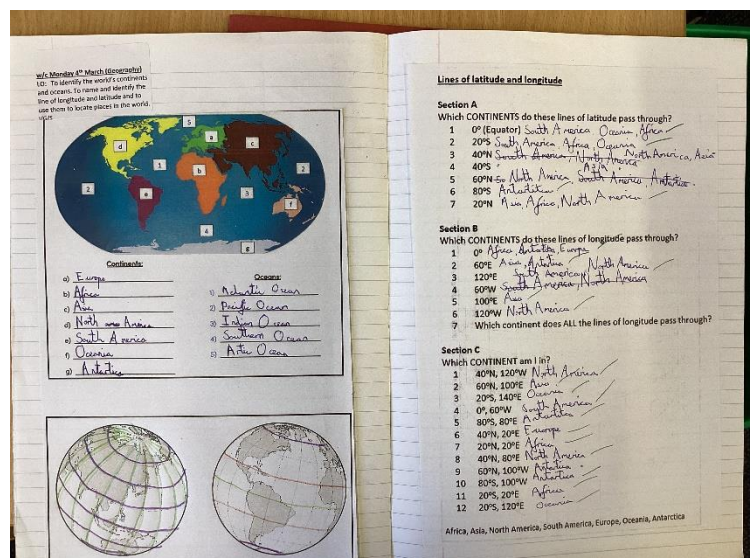 w/c Monday 4th March (Geography)
LO: To identify the world's continents
and oceans. To name and identify the
line of longitude and latitude and to
use them to locate places in the world.
5
d
a
c
1
b
2
2
e
3
f
4
g
Continents:
a) Europe
b) Africa
c) Asia
d) North America
e) South America
f) Oceania
g) Antartica
Oceans:
1) Atlantic Ocean
2) Pacific Ocean
3) Indian Ocean
4) Southern Ocean
5) Artic Ocean
Lines of latitude and longitude
Section A
Which CONTINENTS do these lines of latitude pass through?
1 0° (Equator) South America Oceania, Africa
2 20°S South America, Africa Oceania
3 40°N South America, North America North America, Asia
4 40°S Asia
5 60°N So North America, South America, Antartica.
6 80°S Antartitica
7 20°N Asia, Africa, North America
Section B
Which CONTINENTS do these lines of longitude pass through?
1 0° Africa Antartica, Europe
2 60°E Asia, Antartica North America
3 120°E South America
4 60°W South America, North America
5 100°E Asia
6 120°W North America
7 Which continent does ALL the lines of longitude pass through?
Section C
Which CONTINENT am I in?
1 40°N, 120°W North America
2 60°N, 100°E Asia
3 20°S, 140°E Oceania
4 0°, 60°W South America
5 80°S, 80°E Antartitica
6 40°N, 20°E Europe
7 20°N, 20°E Africa
8 40°N, 80°E North America
9 60°N, 100°W Antartica
10 80°S, 100°W Antartica
11 20°S, 20°E Africa
12 20°S, 120°E Oceania
Africa, Asia, North America, South America, Europe, Oceania, Antarctica